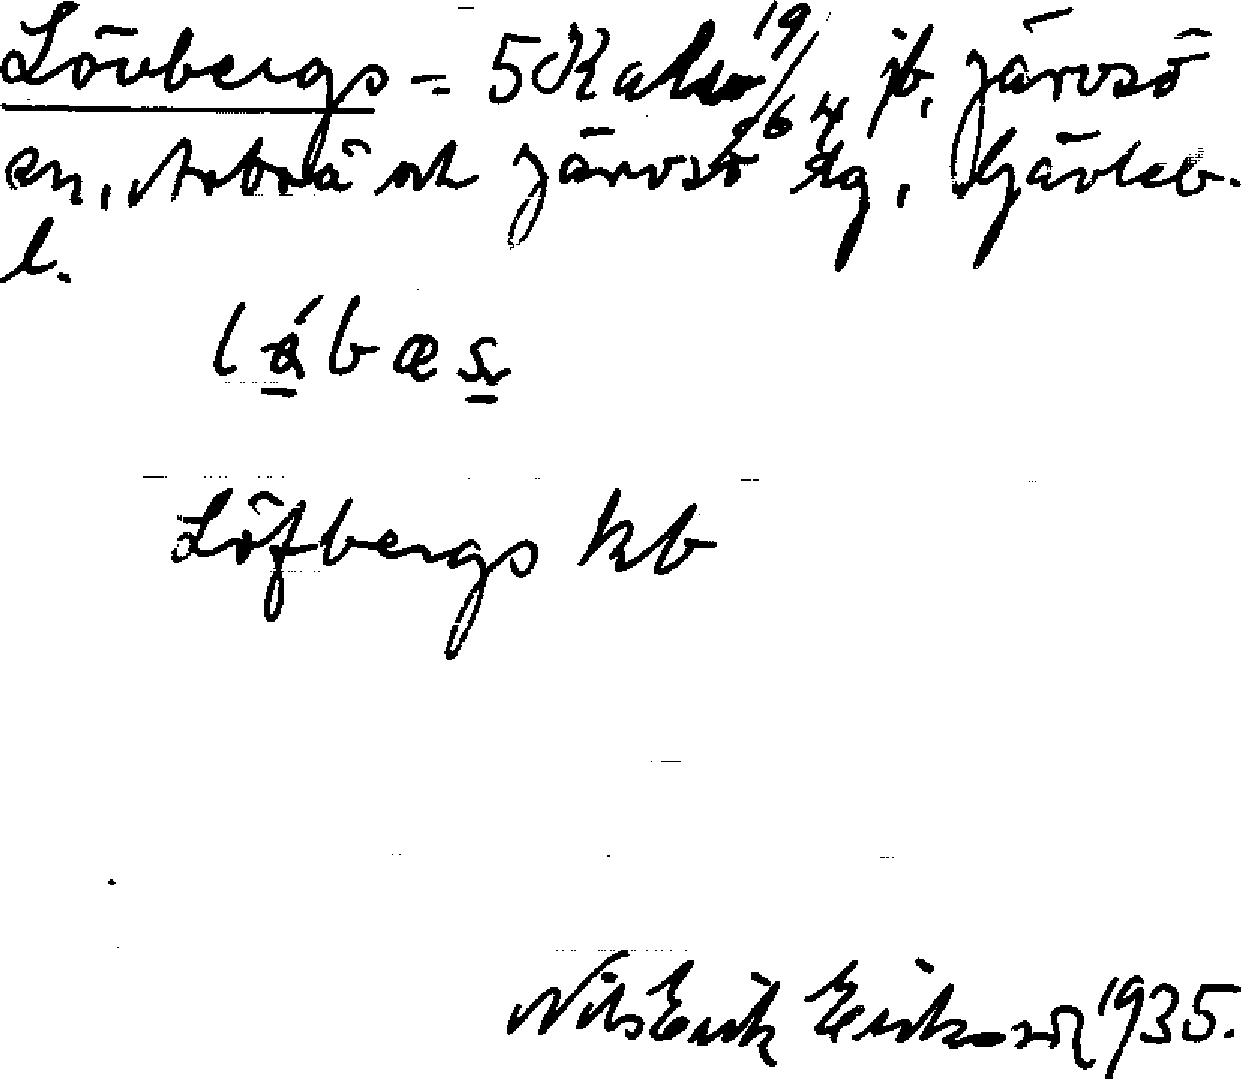 Lövbergs = 5 Kalvo 19/64 jb, Järvsö
sn, Arbrå och Järvsö tg, Gävleb.
l.
lábæs
Löfbergs kb
Nils Erik Eriksson 1935.